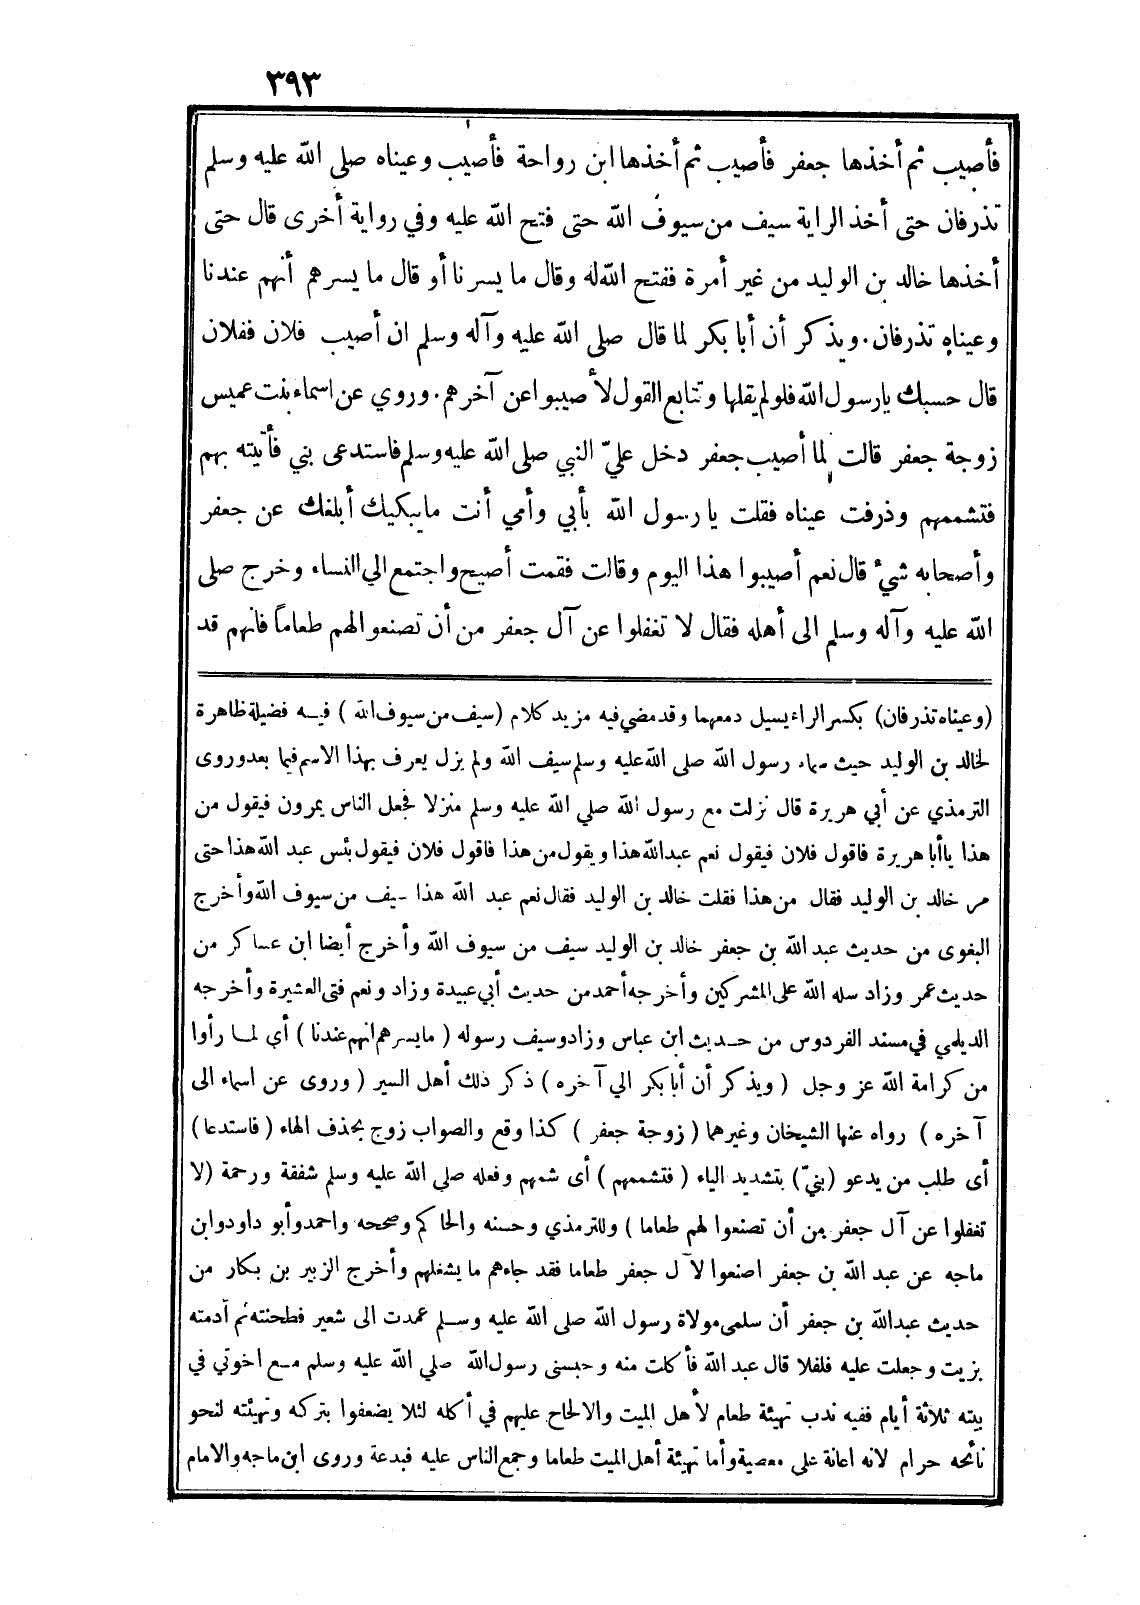 ٣٩٣
فأصيب ثم أخذها جعفر فأصيب ثم أخذها ابن رواحة فأصيب وعيناه صلى الله عليه وسلم
تذرفان حتى أخذ الراية سيف من سيوف الله حتى فتح الله عليه وفي رواية أخرى قال حتى
أخذها خالد بن الوليد من غير أمرة ففتح الله له وقال ما يسرنا أو قال ما يسرهم أنهم عندنا
وعيناه تذرفان. ويذكر أن أبا بكر لما قال صلى الله عليه وآله وسلم ان أصيب فلان ففلان
قال حسبك يا رسول الله فلو لم يقلها وتتابع القول لأصيبوا عن آخرهم. وروي عن اسماء بنت عميس
زوجة جعفر قالت لما أصيب جعفر دخل عليّ النبي صلى الله عليه وسلم فاستدعى بني فأتيته بهم
فتشممهم وذرفت عيناه فقلت يا رسول الله بأبي وأمي أنت ما يبكيك أبلغك عن جعفر
وأصحابه شيء قال نعم أصيبوا هذا اليوم وقالت فقمت أصيح واجتمع الي النساء وخرج صلى
الله عليه وآله وسلم الى أهله فقال لا تغفلوا عن آل جعفر من أن تصنعوا لهم طعاماً فانهم قد
(وعيناه تذرفان) بكسر الراء يسيل دمعهما وقد مضي فيه مزيد كلام (سيف من سيوف الله) فيه فضيلة ظاهرة
لخالد بن الوليد حيث سماه رسول الله صلى الله عليه وسلم سيف الله ولم يزل يعرف بهذا الاسم فيما بعد وروى
الترمذي عن أبي هريرة قال نزلت مع رسول الله صلي الله عليه وسلم منزلا فجعل الناس يمرون فيقول من
هذا يا أبا هريرة فاقول فلان فيقول نعم عبد الله هذا ويقول من هذا فاقول فلان فيقول بئس عبد الله هذا حتى
مر خالد بن الوليد فقال من هذا فقلت خالد بن الوليد فقال نعم عبد الله هذا سيف من سيوف الله وأخرج
البغوى من حديث عبد الله بن جعفر خالد بن الوليد سيف من سيوف الله وأخرج أيضا ابن عساكر من
حديث عمر وزاد سله الله على المشركين وأخرجه أحمد من حديث أبي عبيدة وزاد ونعم فتى العشيرة وأخرجه
الديلمي في مسند الفردوس من حديث ابن عباس وزاد وسيف رسوله (ما يسرهم انهم عندنا) أي لما رأوا
من كرامة الله عز وجل (ويذكر أن أبا بكر الي آخره) ذكر ذلك أهل السير (وروى عن اسماء الى
آخره) رواه عنها الشيخان وغيرهما (زوجة جعفر) كذا وقع والصواب زوج بحذف الهاء (فاستدعا)
أى طلب من يدعو (بنيّ) بتشديد الياء (فتشممهم) أى شمهم وفعله صلي الله عليه وسلم شفقة ورحمة (لا
تغفلوا عن آل جعفر من أن تصنعوا لهم طعاما) وللترمذي وحسنه والحاكم وصححه واحمد وأبو داود وابن
ماجه عن عبد الله بن جعفر اصنعوا لآل جعفر طعاما فقد جاءهم ما يشغلهم وأخرج الزبير بن بكار من
حديث عبد الله بن جعفر أن سلمى مولاة رسول الله صلى الله عليه وسلم عمدت الى شعير فطحنته ثم أدمته
بزيت وجعلت عليه فلفلا قال عبد الله فأكلت منه وحبسنى رسول الله صلي الله عليه وسلم مع اخوتي في
بيته ثلاثة أيام ففيه ندب تهيئة طعام لأهل الميت والالحاح عليهم في أكله لئلا يضعفوا بتركه وتهيئته لنحو
نائحه حرام لانه اعانة على معصية وأما تهيئة أهل الميت طعاما وجمع الناس عليه فبدعة وروى ابن ماجه والامام